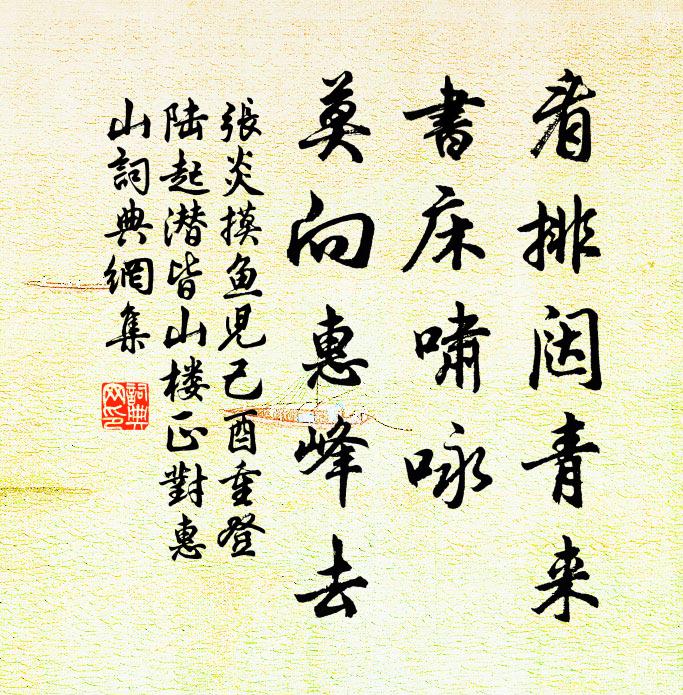 看排闼青来
書床啸咏
莫向惠峰去
張炎摸鱼児己酉重登
陆起潜皆山楼正對惠
山詞典網集
詞典网印